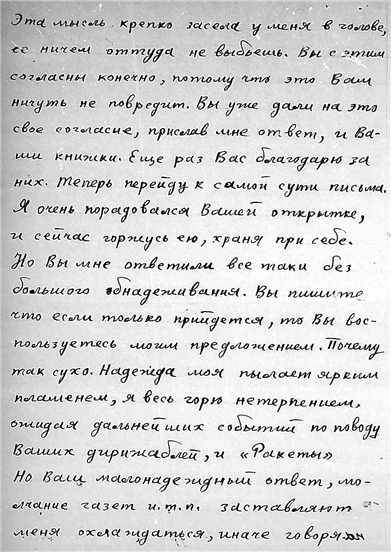 Эта мысль крепко засела у меня в голове,
ее ничем оттуда не выбьешь. Вы с этим
согласны конечно, потому что это Вам
ничуть не повредит. Вы уже дали на это
свое согласие, прислав мне ответ, и Ва-
ши книжки. Еще раз Вас благодарю за
них. Теперь перейду к самой сути письма.
Я очень порадовался Вашей открытке,
и сейчас горжусь ею, храня при себе.
Но Вы мне ответили все таки без
большого обнадеживания. Вы пишите
что если только прийдется, то Вы вос-
пользуетесь моим предложением. Почему
так сухо. Надежда моя пылает ярким
пламенем, я весь горю нетерпением,
ожидая дальнейших событий по поводу
Ваших дирижаблей, и «Ракеты»
Но Ваш малонадеждный ответ, мо-
лчание газет и.т.п. заставляют
меня охлаждаться, иначе говоря он